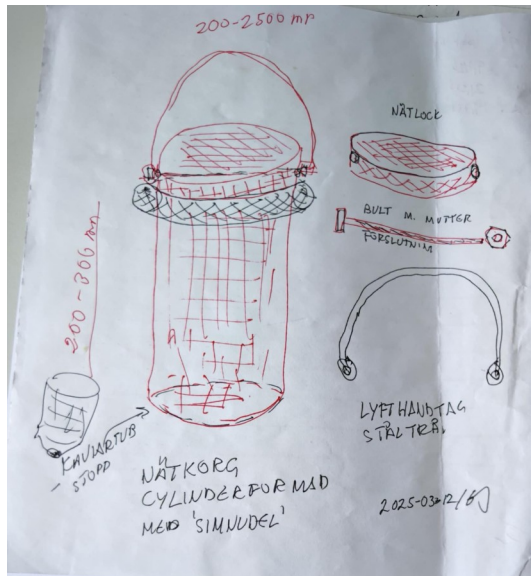 200-2500 mm
NÄTLOCK
BULT M. MUTTER
200-300 mm
LYFTHANDTAG
STÅLTRÅ
KAVIARTUB
STOPP
NÄTKORG
CYLINDERFORMAD
MED 'SIMNUDEL'